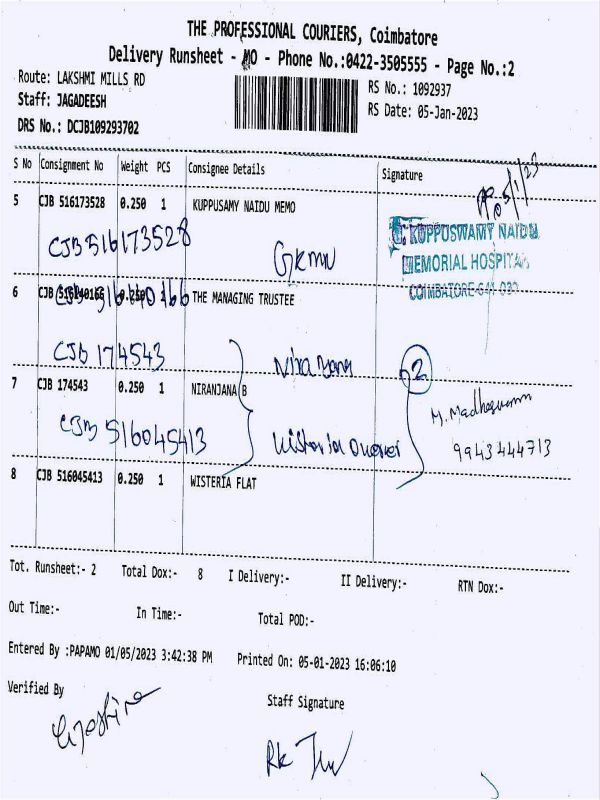 THE PROFESSIONAL COURIERS, Coimbatore
Delivery Runsheet - MO - Phone No.:0422-3505555 - Page No.:2
Route: LAKSHMI MILLS RD
RS No.: 1092937
Staff: JAGADEESH
RS Date: 05-Jan-2023
DRS No.: DCJB109293702
S No Consignment No Weight PCS Consignee Details Signature
5/1/23
5 CJB 516173528 0.250 1 KUPPUSAMY NAIDU MEMO
CJB 516173528 GKMN
G. KUPPUSWAMY NAIDU
MEMORIAL HOSPITAL
COIMBATORE-641 037
6 CJB 516140166 0.250 1 THE MANAGING TRUSTEE
CJB 516140166
CJB 174543 Niranjana 2
7 CJB 174543 0.250 1 NIRANJANA B
CJB 516045413
9943444713
8 CJB 516045413 0.250 1 WISTERIA FLAT
Tot. Runsheet:- 2 Total Dox:- 8 I Delivery:- II Delivery:- RTN Dox:-
Out Time:- In Time:- Total POD:-
Entered By :PAPAMO 01/05/2023 3:42:38 PM Printed On: 05-01-2023 16:06:10
Verified By Staff Signature